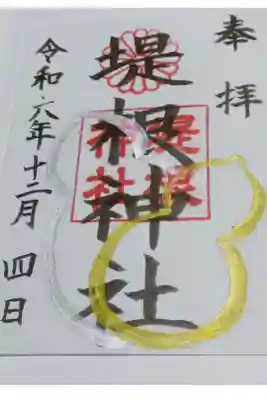 奉拝
堤根神社
堤根神社
令和六年十二月四日